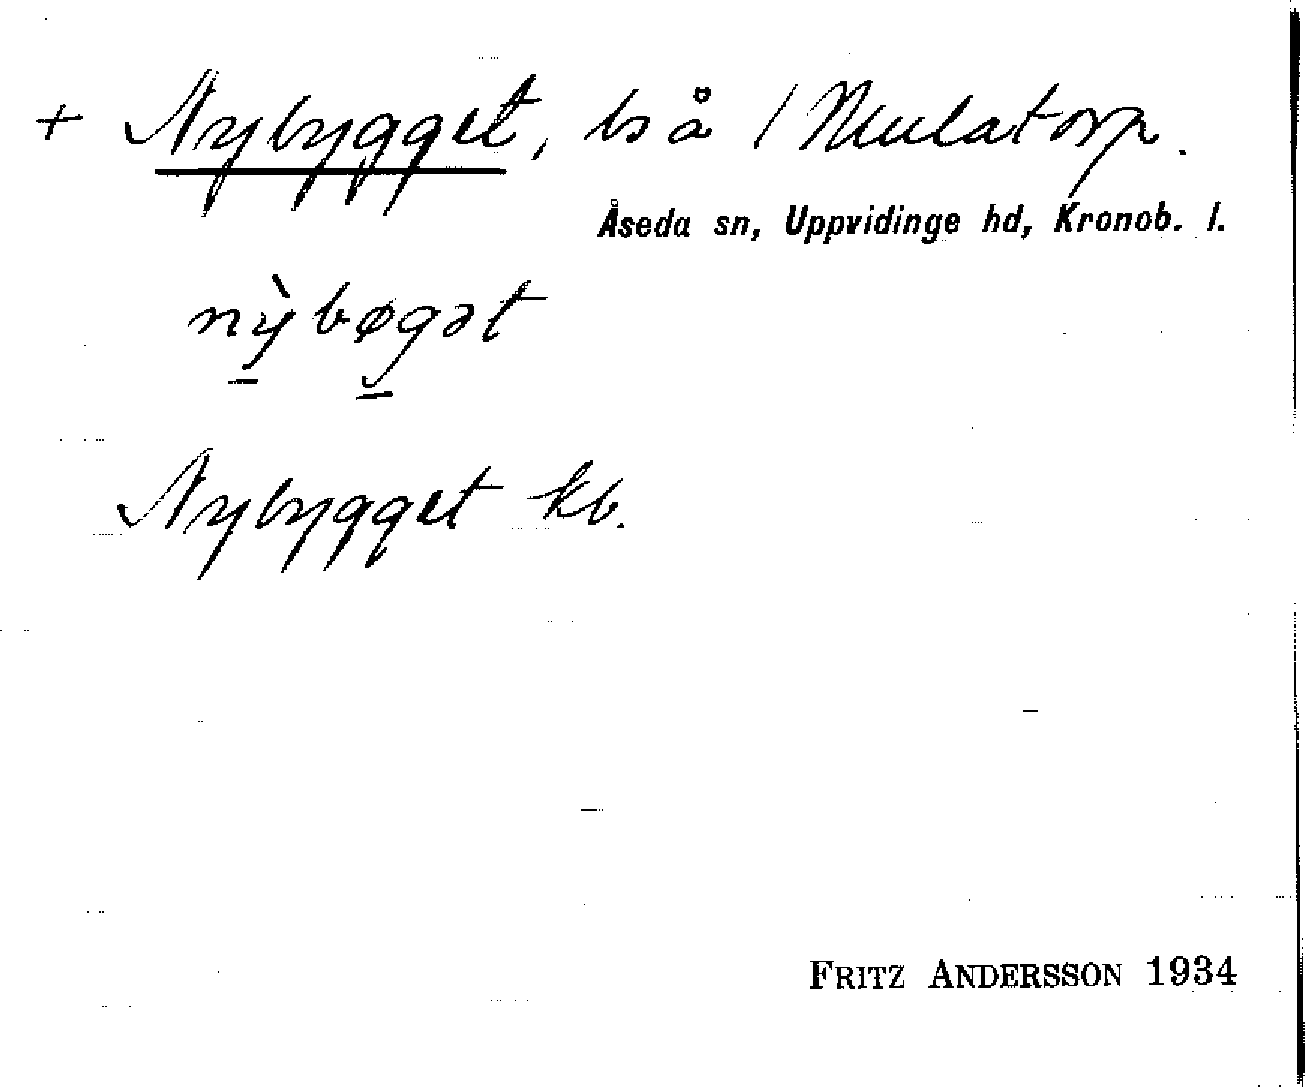 + Nybygget, bs å 1 Mulatorp.
Åseda sn, Uppvidinge hd, Kronob. l.
nỳbøgət
Nybygget kb.
FRITZ ANDERSSON 1934